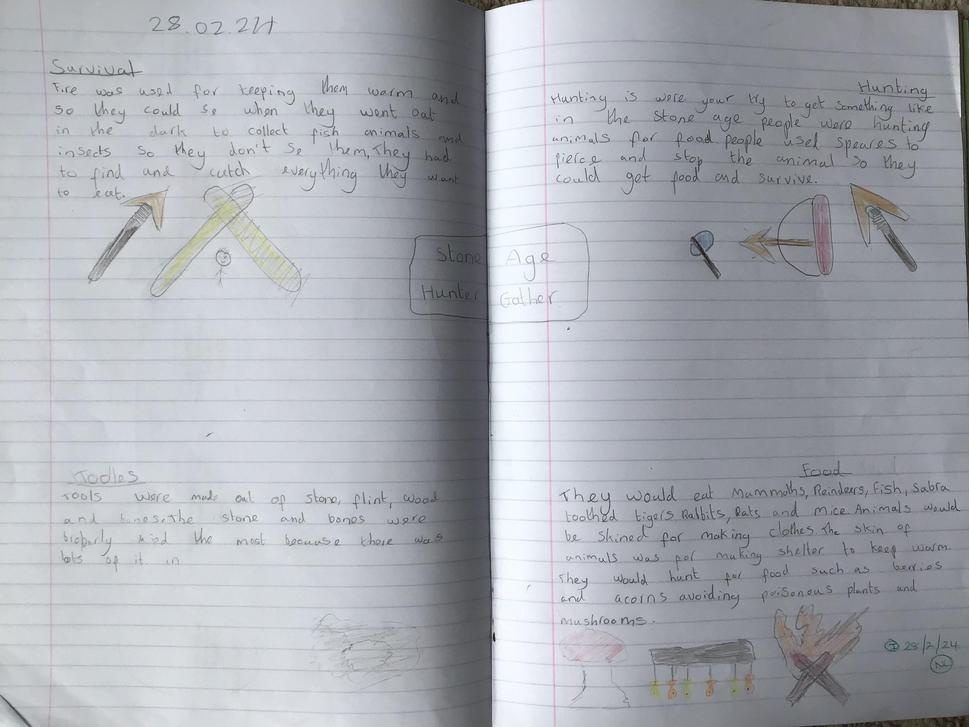 28.02.24
Survival
Fire was used for keeping them warm and
so they could se when they went out
in the dark to collect fish animals and
insects so they don't se them, They had
to find and catch everything they want
to eat.
Hunting
Hunting is were your try to get something like
in the stone age people were hunting
animals for food people used speares to
pierce and stop the animal so they
could get food and survive.
Stone Age
Hunter Gather
Tooles
Tools were made out of stone, flint, wood
and bones. The stone and bones were
the most because there was
lots of it in
Food
They would eat Mammoths, Reindeers, Fish, Sabra
toothed tigers, Rabbits, Rats and mice Animals would
be skined for making clothes. The skin of
animals was for making shelter to keep warm.
They would hunt for food such as berries
and acorns avoiding poisonous plants and
mushrooms.
28/2/24